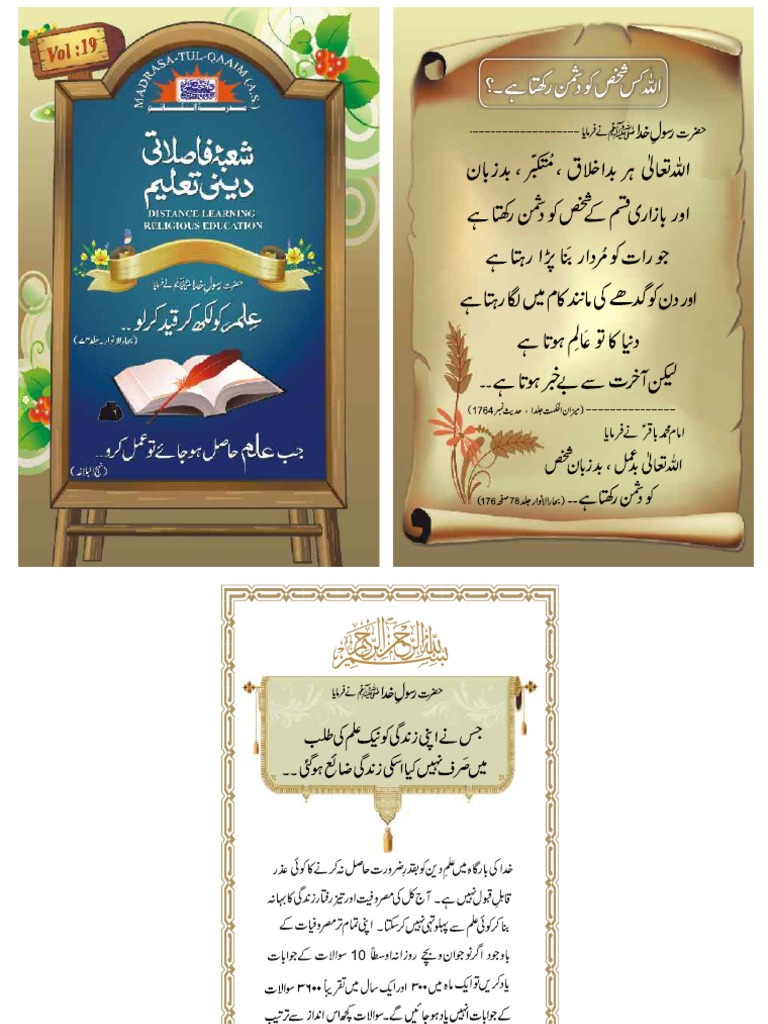 Vol :19
MADRASA-TUL-QAAIM (A.S)
شعبۂ فاصلاتی
دینی تعلیم
DISTANCE LEARNING
RELIGIOUS EDUCATION
حضرت رسولِ خدا ﷺ نے فرمایا
عِلم کو لکھ کر قید کر لو ۔۔
جب علم حاصل ہو جائے تو عمل کرو ۔۔
(نہج البلاغہ)
اللہ کس شخص کو دشمن رکھتا ہے ۔؟
حضرت رسولِ خدا ﷺ نے فرمایا
اللہ تعالیٰ ہر بداخلاق ، مُتکبّر ، بدزبان
اور بازاری قسم کے شخص کو دشمن رکھتا ہے
جو رات کو مُردار بَنا پڑا رہتا ہے
اور دن کو گدھے کی مانند کام میں لگا رہتا ہے
دنیا کا تو عَالِم ہوتا ہے
لیکن آخرت سے بے خبر ہوتا ہے ۔۔
(میزان الحکمت جلد ۱ ، حدیث نمبر 1764)
امام محمد باقرؑ نے فرمایا
اللہ تعالیٰ بدعمل ، بدزبان شخص
کو دشمن رکھتا ہے ۔۔ (بحار الانوار جلد 78 صفحہ 176)
بسم اللہ الرحمن الرحیم
حضرت رسولِ خدا ﷺ نے فرمایا
جس نے اپنی زندگی کو نیک علم کی طلب
میں صَرف نہیں کیا اسکی زندگی ضائع ہو گئی ۔۔
خدا کی بارگاہ میں علمِ دین کو بقدرِ ضرورت حاصل نہ کرنے کا کوئی عذر
قابلِ قبول نہیں ہے ۔ آج کل کی مصروفیت اور تیز رفتار زندگی کا بہانہ
بنا کر کوئی علم سے پہلو تہی نہیں کر سکتا ۔ اپنی تمام تر مصروفیات کے
باوجود اگر نوجوان و بچے روزانہ اوسطاً 10 سوالات کے جوابات
یاد کریں تو ایک ماہ میں ۳۰۰ اور ایک سال میں تقریباً ۳۶۰۰ سوالات
کے جوابات انہیں یاد ہو جائیں گے ۔ سوالات کچھ اس انداز سے ترتیب